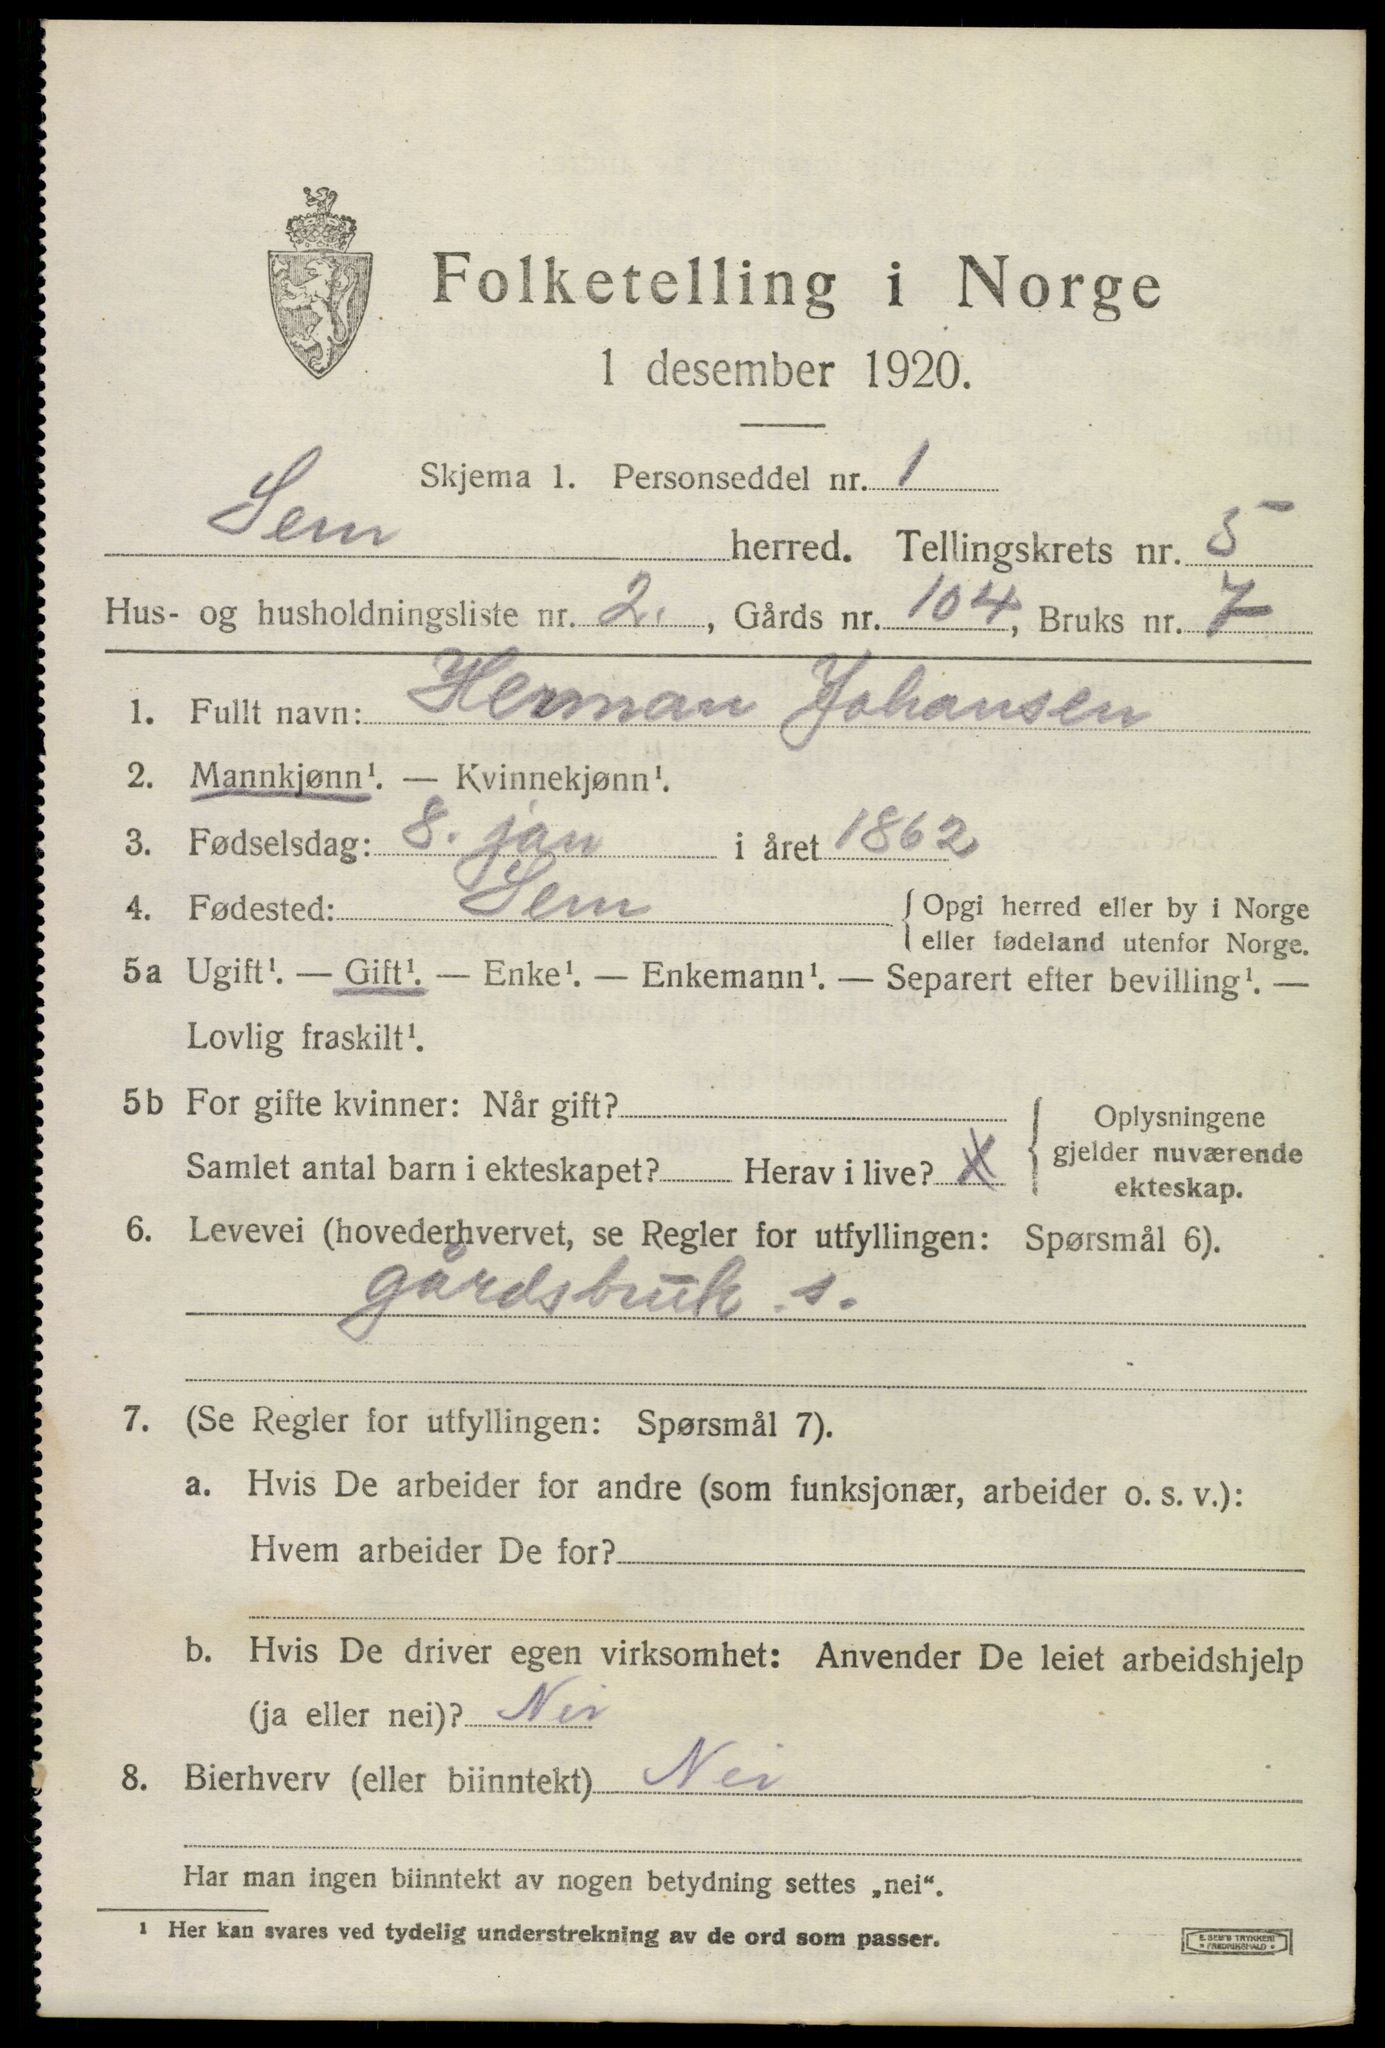 Folketelling i Norge
1 desember 1920.
Skjema 1. Personseddel nr. 1
Sem herred. Tellingskrets nr. 5
Hus- og husholdningsliste nr. 2., Gårds nr. 104, Bruks nr. 7
1. Fullt navn: Herman Johansen
2. Mannkjønn¹. — Kvinnekjønn¹.
3. Fødselsdag: 8. jan i året 1862
4. Fødested: Sem { Opgi herred eller by i Norge
eller fødeland utenfor Norge.
5a Ugift¹. — Gift¹. — Enke¹. — Enkemann¹. — Separert efter bevilling¹. —
Lovlig fraskilt¹.
5b For gifte kvinner: Når gift?
Samlet antal barn i ekteskapet? Herav i live? X
{ Oplysningene
gjelder nuværende
ekteskap.
6. Levevei (hovederhvervet, se Regler for utfyllingen: Spørsmål 6).
gårdsbruk. s.
7. (Se Regler for utfyllingen: Spørsmål 7).
a. Hvis De arbeider for andre (som funksjonær, arbeider o. s. v.):
Hvem arbeider De for?
b. Hvis De driver egen virksomhet: Anvender De leiet arbeidshjelp
(ja eller nei)? Nei
8. Bierhverv (eller biinntekt) Nei
Har man ingen biinntekt av nogen betydning settes „nei“.
¹ Her kan svares ved tydelig understrekning av de ord som passer.
E. SEM'S TRYKKERI
• FREDRIKSHALD •